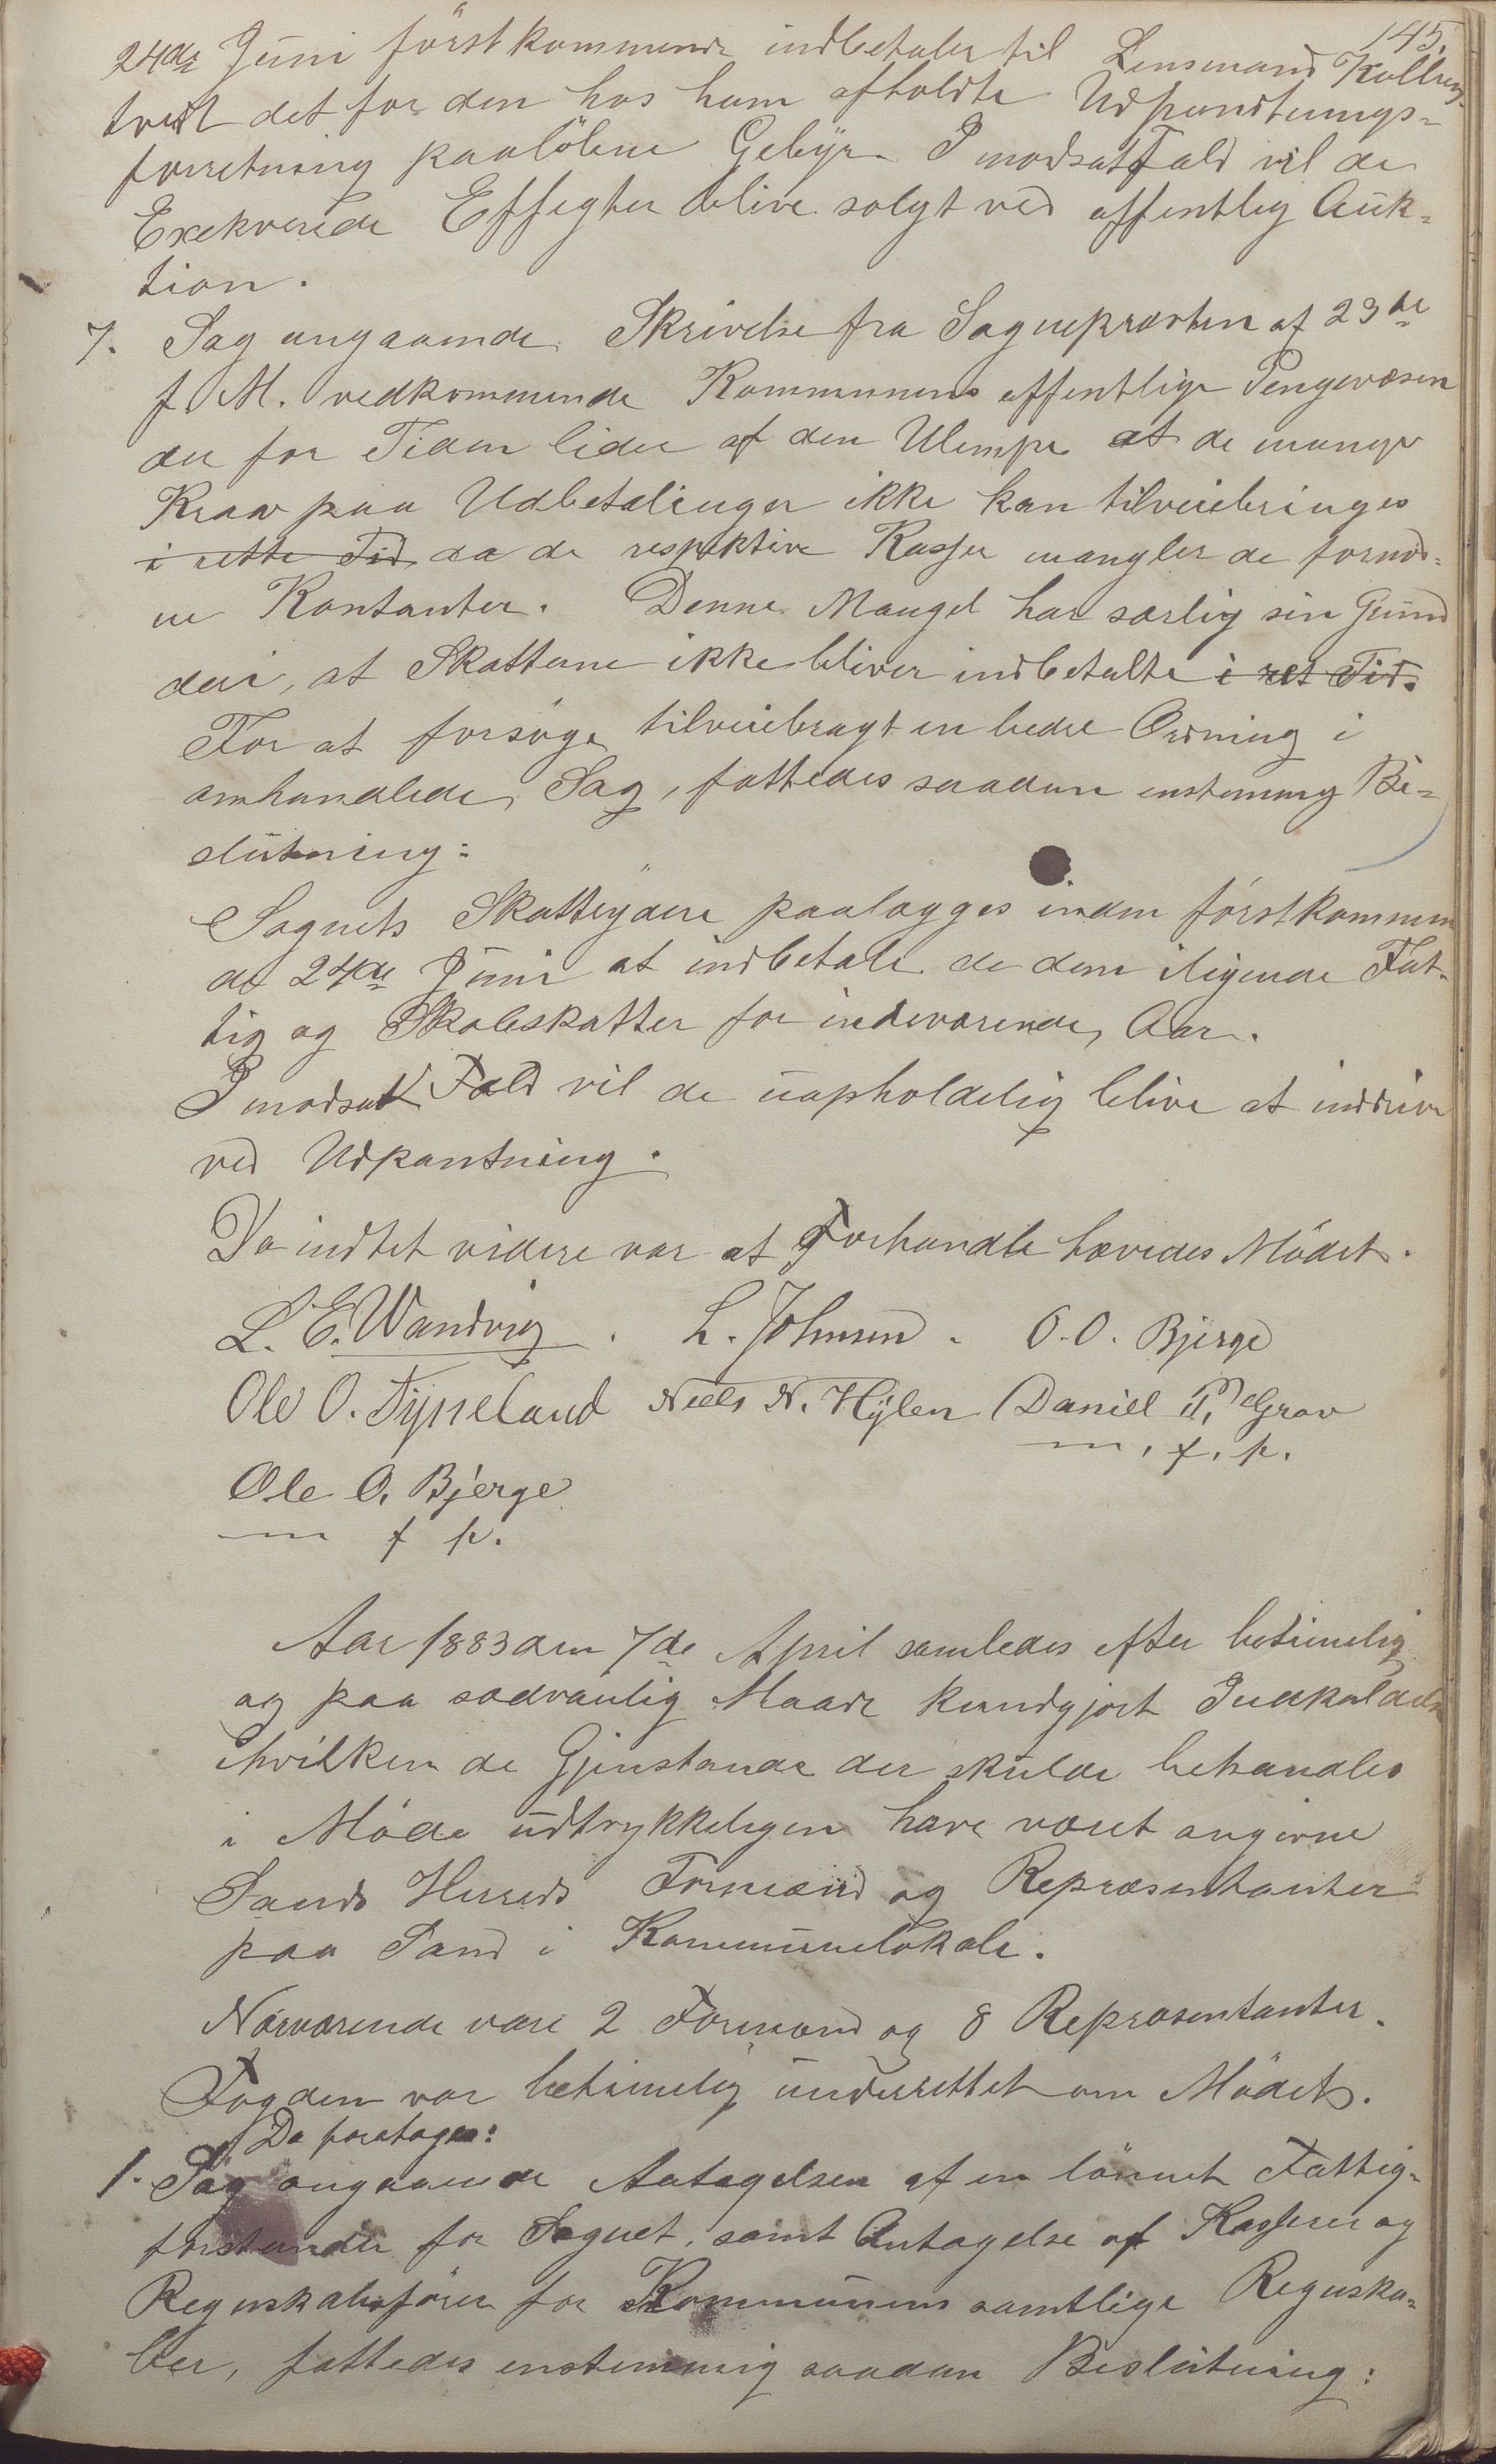 145.
24de Juni förstkommende indbetaler til Lensmand Kolbeins-
tvedt det for den hos ham afholdte Udpantnings-
forretning paalöbne Gebyr. I modsat Fald vil de
Exekverede Effegter blive solgt ved offentlig Auk-
tion.
7. Sag angaaende Skrivelse fra Sognepræsten af 23de
f. M. vedkommende Kommunens offentlige Pengevæsen
der for Tiden lider af den Ulempe at de mange
Krav paa Udbetalinger ikke kan tilveiebringes
i rette Tid da de respektive Kasser mangler de fornöd-
ne Kontanter. Denne Mangel har særlig sin Grund
deri, at Skatterne ikke bliver indbetalte i ret Tid.
For at forsöge tilveiebragt en bedre Ordning i
omhandlede Sag, fattedes saadan enstemmig Be-
slutning:
Sognets Skatteydere paalægges inden förstkommen
de 24de Juni at indbetale de dem iligende Fat-
tig og Skoleskatter for indeværende Aar.
I modsat Fald vil de uopholdelig blive at inddrive
ved Udpantning.
Da indtet videre var at Forhandle hævedes Mödet.
L. E. Wandvig . L. Johnsen . O. O. Bjerge
Ole O. Tysseland Niels N. Hylen Daniel P. Grov
m. f. p.
Ole O. Bjerge
m f p.
Aar 1883 den 7de April samledes efter betimelig
og paa sædvanlig Maade kundgjort Indkaldelse
ihvilken de Gjenstande der skulde behandles
i Möde udtrykkeligen have været angivne
Sands Herreds Formænd og Repræsentanter
paa Sand i Kommunelokale.
Nærværende vare 2 Formænd og 8 Repræsentanter.
Fogden var betimelig underrettet om Mödet.
Da foretages:
1. Sag angaaende Antagelsen af en lönnet Fattig-
forstander for Sognet, samt Antagelse af Kasserer og
Regnskabsförer for Kommunens samtlige Regnska-
ber, fattedes enstemmig saadan Beslutning: